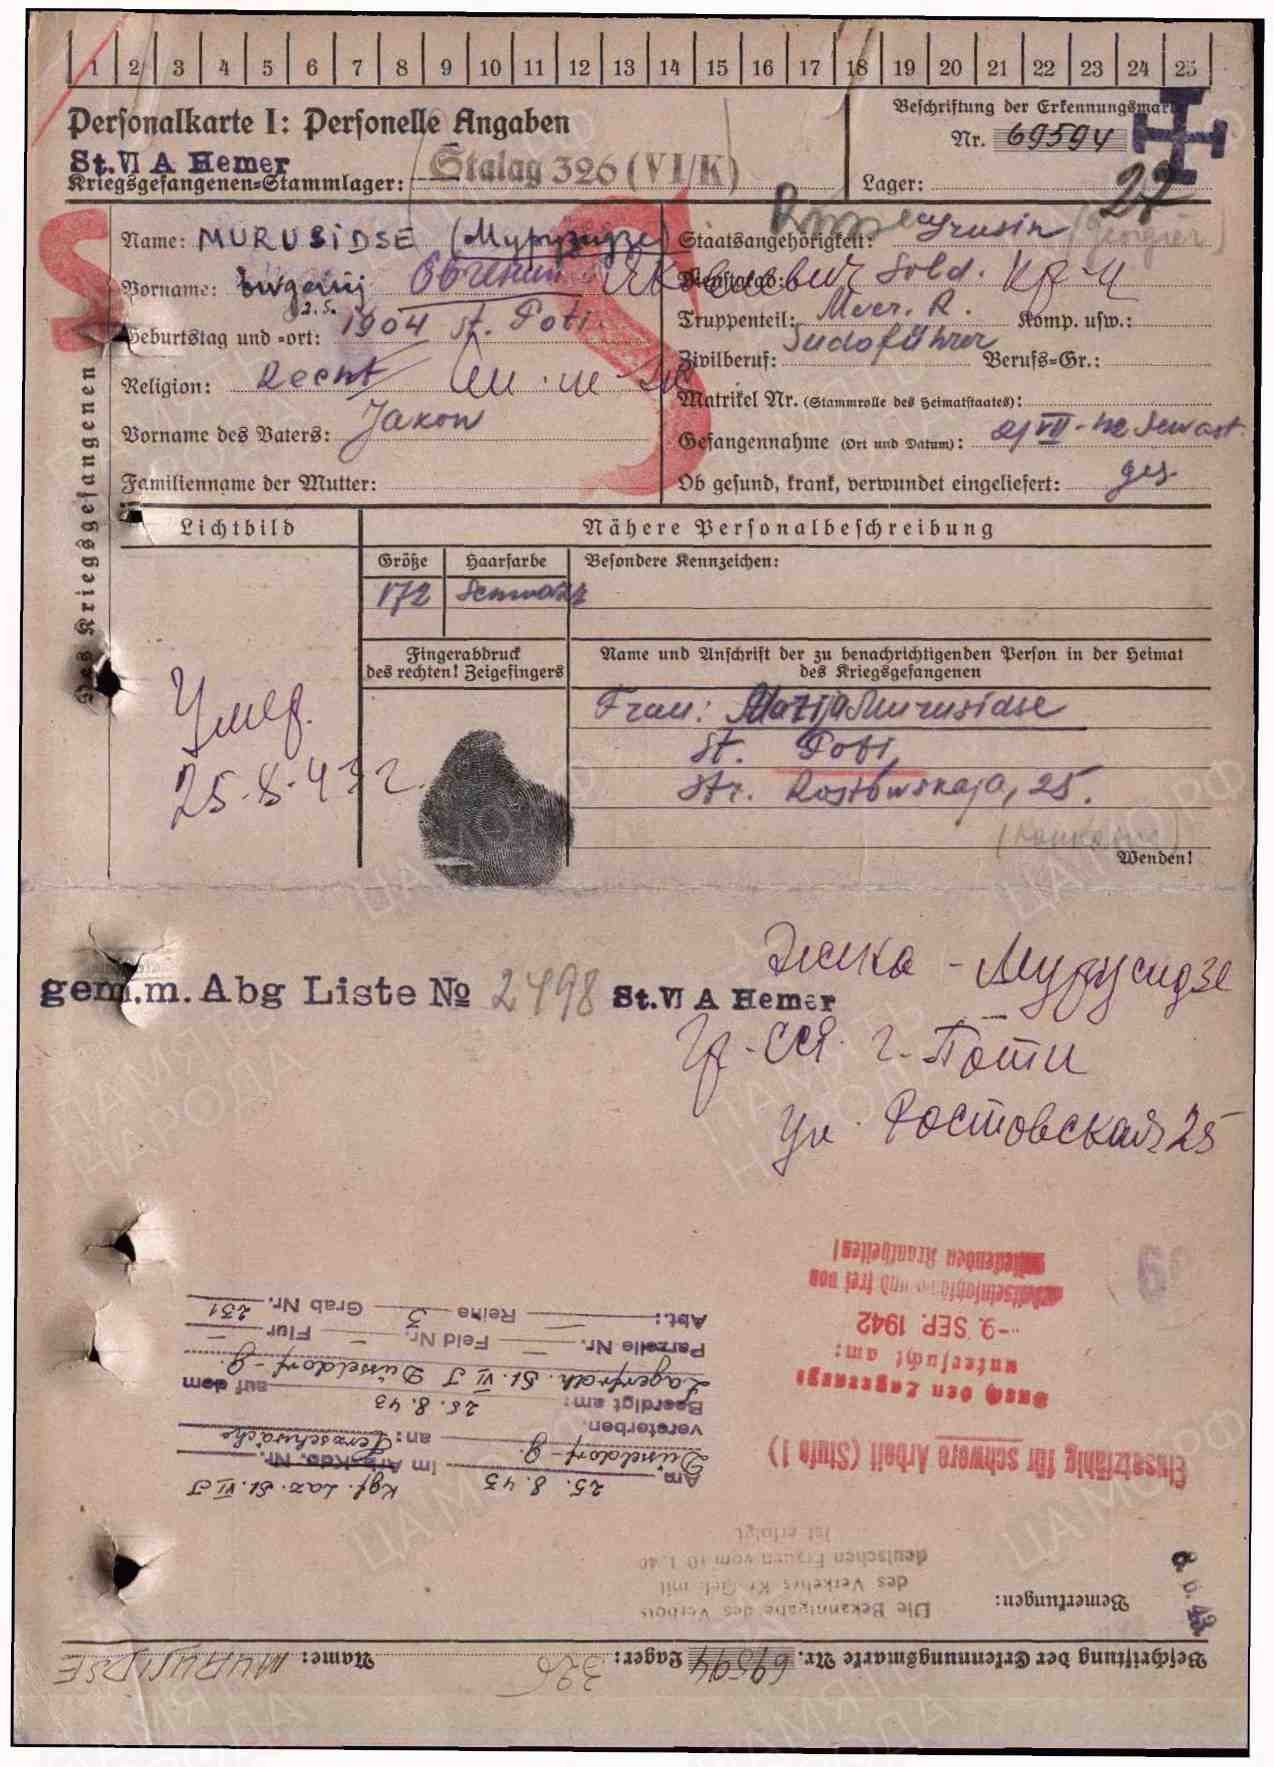 1 2 3 4 5 6 7 8 9 10 11 12 13 14 15 16 17 18 19 20 21 22 23 24 25
Personalkarte I: Personelle Angaben
Beschriftung der Erkennungsmarke
Nr. 69594
St. VI A Hemer
Kriegsgefangenen-Stammlager: Stalag 326 (VI/K)
Lager:
27
Des Kriegsgefangenen
Name: MURUSIDSE (Мурузидзе)
Vorname: Ewganij Евгений Яковлевич
Geburtstag und -ort: 2.5. 1904 st. Poti.
Religion:
Vorname des Vaters: Jakow
Familienname der Mutter:
Staatsangehörigkeit: Russe Grusin (Georgier)
Dienstgrad: Sold. Кр-ц
Truppenteil: Meer. R. Komp. usw.:
Zivilberuf: Berufs-Gr.:
Matrikel Nr. (Stammrolle des Heimatstaates):
Gefangennahme (Ort und Datum): VII-42 Sewast.
Ob gesund, krank, verwundet eingeliefert: ges.
Lichtbild
Nähere Personalbeschreibung
Größe Haarfarbe Besondere Kennzeichen:
172 Schwarz
Fingerabdruck
des rechten! Zeigefingers
Name und Anschrift der zu benachrichtigenden Person in der Heimat
des Kriegsgefangenen
Frau: Marija Murusidse
St. Poti,
Str. Rostowskaja, 25.
(Kaukasus)
Wenden!
Умер.
25.8.43 г.
gem.m. Abg Liste № 2498 St. VI A Hemer
Жена - Мурузидзе
Гр. ССР. г. Поти
ул. Ростовская 25
Beschriftung der Erkennungsmarke Nr. 69594 Lager: 326 Name: MURUSIDSE
Bemerkungen:
Die Bekanntgabe des Verbots
des Verkehrs Kr. Gef. mit
deutschen Frauen vom 10.1.40
ist erfolgt
Einsatzfähig für schwere Arbeit (Stufe 1)
Durch den Lagerarzt
untersucht am:
-9. SEP. 1942
Arbeitseinsatzfähig und frei von
ansteckenden Krankheiten!
Am 25. 8. 43 Kgf. Laz. St. VI J
Düsseldorf-G. Im Arb. Kdo. Nr.
an: Herzschwäche
verstorben.
Beerdigt am: 25. 8. 43 auf dem
Lagerfrdh. St. VI J Düsseldorf-G.
Parzelle Nr. — Feld Nr. — Flur —
Abt.: — Reihe 3 Grab Nr. 231